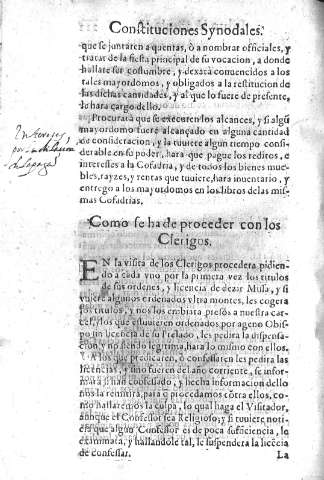 Constituciones Synodales.
que se juntaren a quentas, ò a nombrar officiales, y
tratar de la fiesta principal de su vocacion, a donde
hallare ser costumbre, y dexarà convencidos a los
tales mayordomos, y obligados a la restitucion de
las dichas cantidades, y al que lo fuere de presente,
le harà cargo dello.
Procurarà que se executen los alcances, y si algũ
mayordomo fuere alcançado en alguna cantidad
de consideracion, y la tuviere algun tiempo consi-
derable en su poder, harà que pague los reditos, e
interesses a la Cofadria, y de todos los bienes mue-
bles, rayzes, y rentas que tuviere, harà inventario, y
entrego a los mayordomos en los libros de las mis-
mas Cofadrias.
Como se ha de proceder con los
Clerigos.
EN la visita de los Clerigos procederà pidien-
do a cada vno por la primera vez los titulos
de sus ordenes, y licencia de dezir Missa, y si
viniere algunos ordenados vltra montes, les cogerà
los titulos, y nos los embiarà presos a nuestra car-
cel, los que estuvieren ordenados por ageno Obis-
po sin licencia de su Prelado, les pedirà la dispensa-
cion, y no siendo legitima, harà lo mismo con ellos.
A los que predicaren, ò confessaren les pedirà las
licencias, y sino fueren del año corriente, se infor-
marà si han confessado, y hecha informacion dello
nos la remitirà, para q̃ procedamos cõtra ellos, co-
mo hallaremos la culpa, lo qual haga el Visitador,
aunque el Confessor sea Religioso; y si tuviere noti-
cia que algun Confessor es de poca suficiencia, lo
examinarà, y hallandole tal, le suspenderà la licẽcia
de confessar.
La